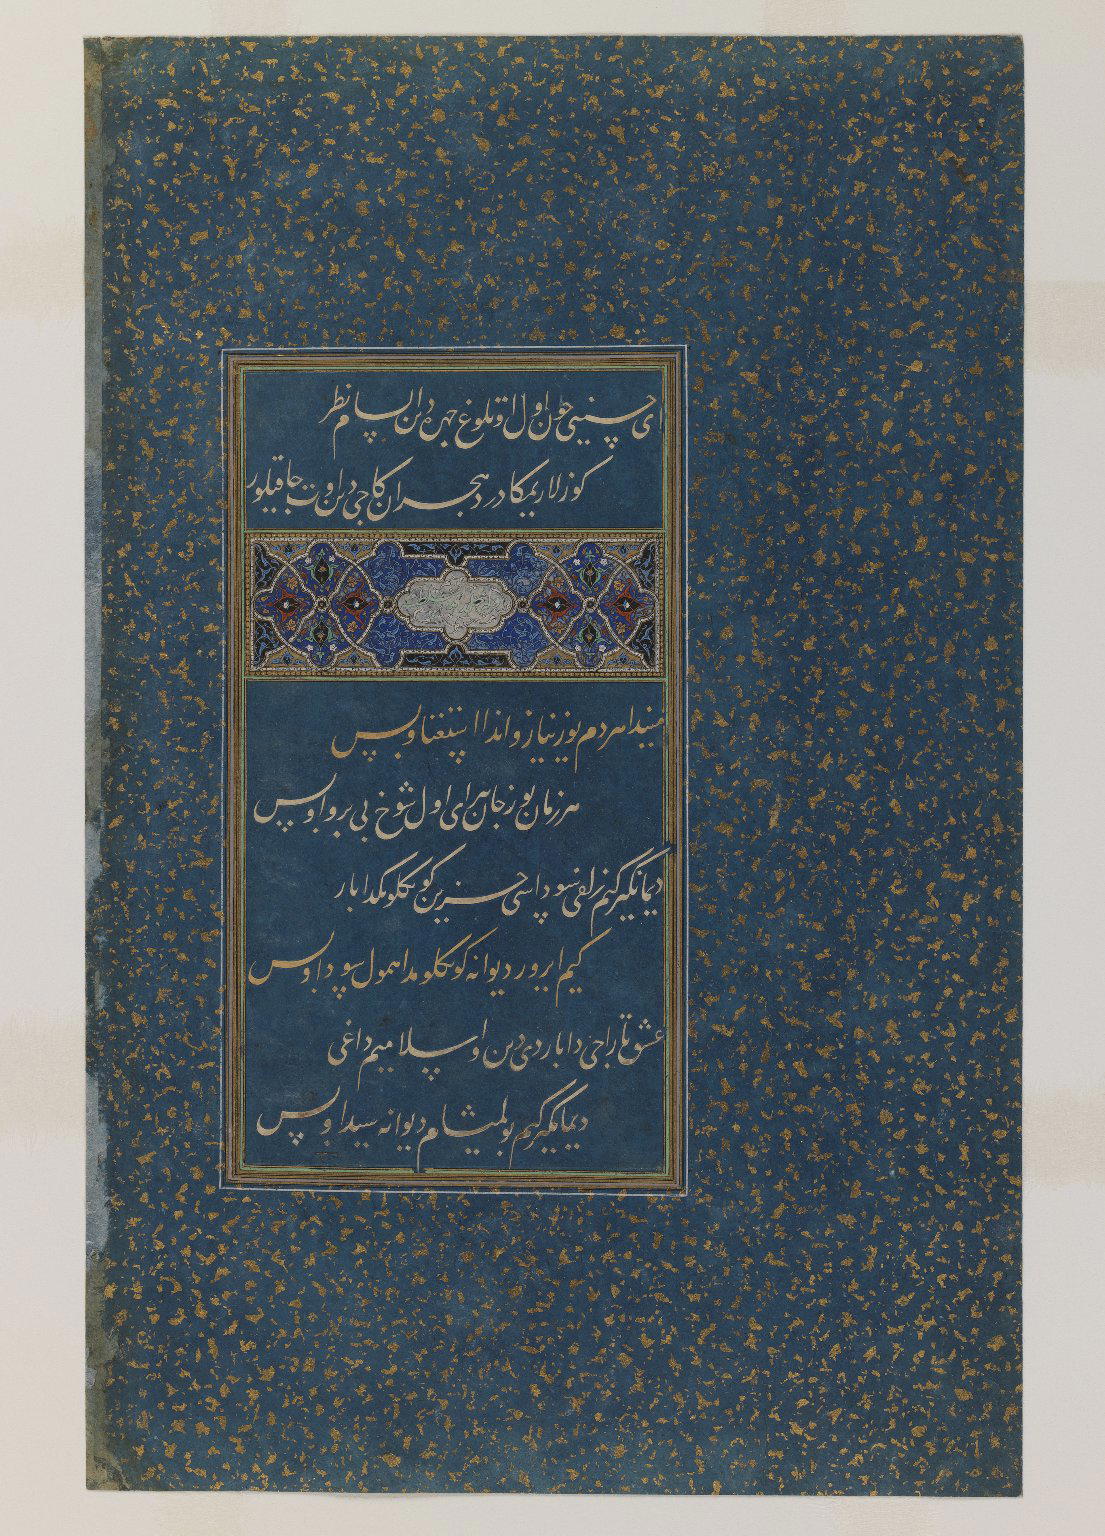 ای حسینی چون اول اوتلوغ جهره دین السام نظر
کوزلاریمکا در هجران کاجی دین اوت جاقیلور
میندا هر دم یوز نیاز و اندا استغنا و بس
هر زمان یوز جان برای اول شوخ بی پروا و بس
دیمانکیز کیم زلفی سوداسی حزین کونکلومکدا بار
کیم ایرور دیوانه کونکلومدا همول سودا و بس
عشق تاراجی دا باردی دین و اسلامیم داغی
دیمانکیز کیم بولمیشام دیوانه شیدا و بس